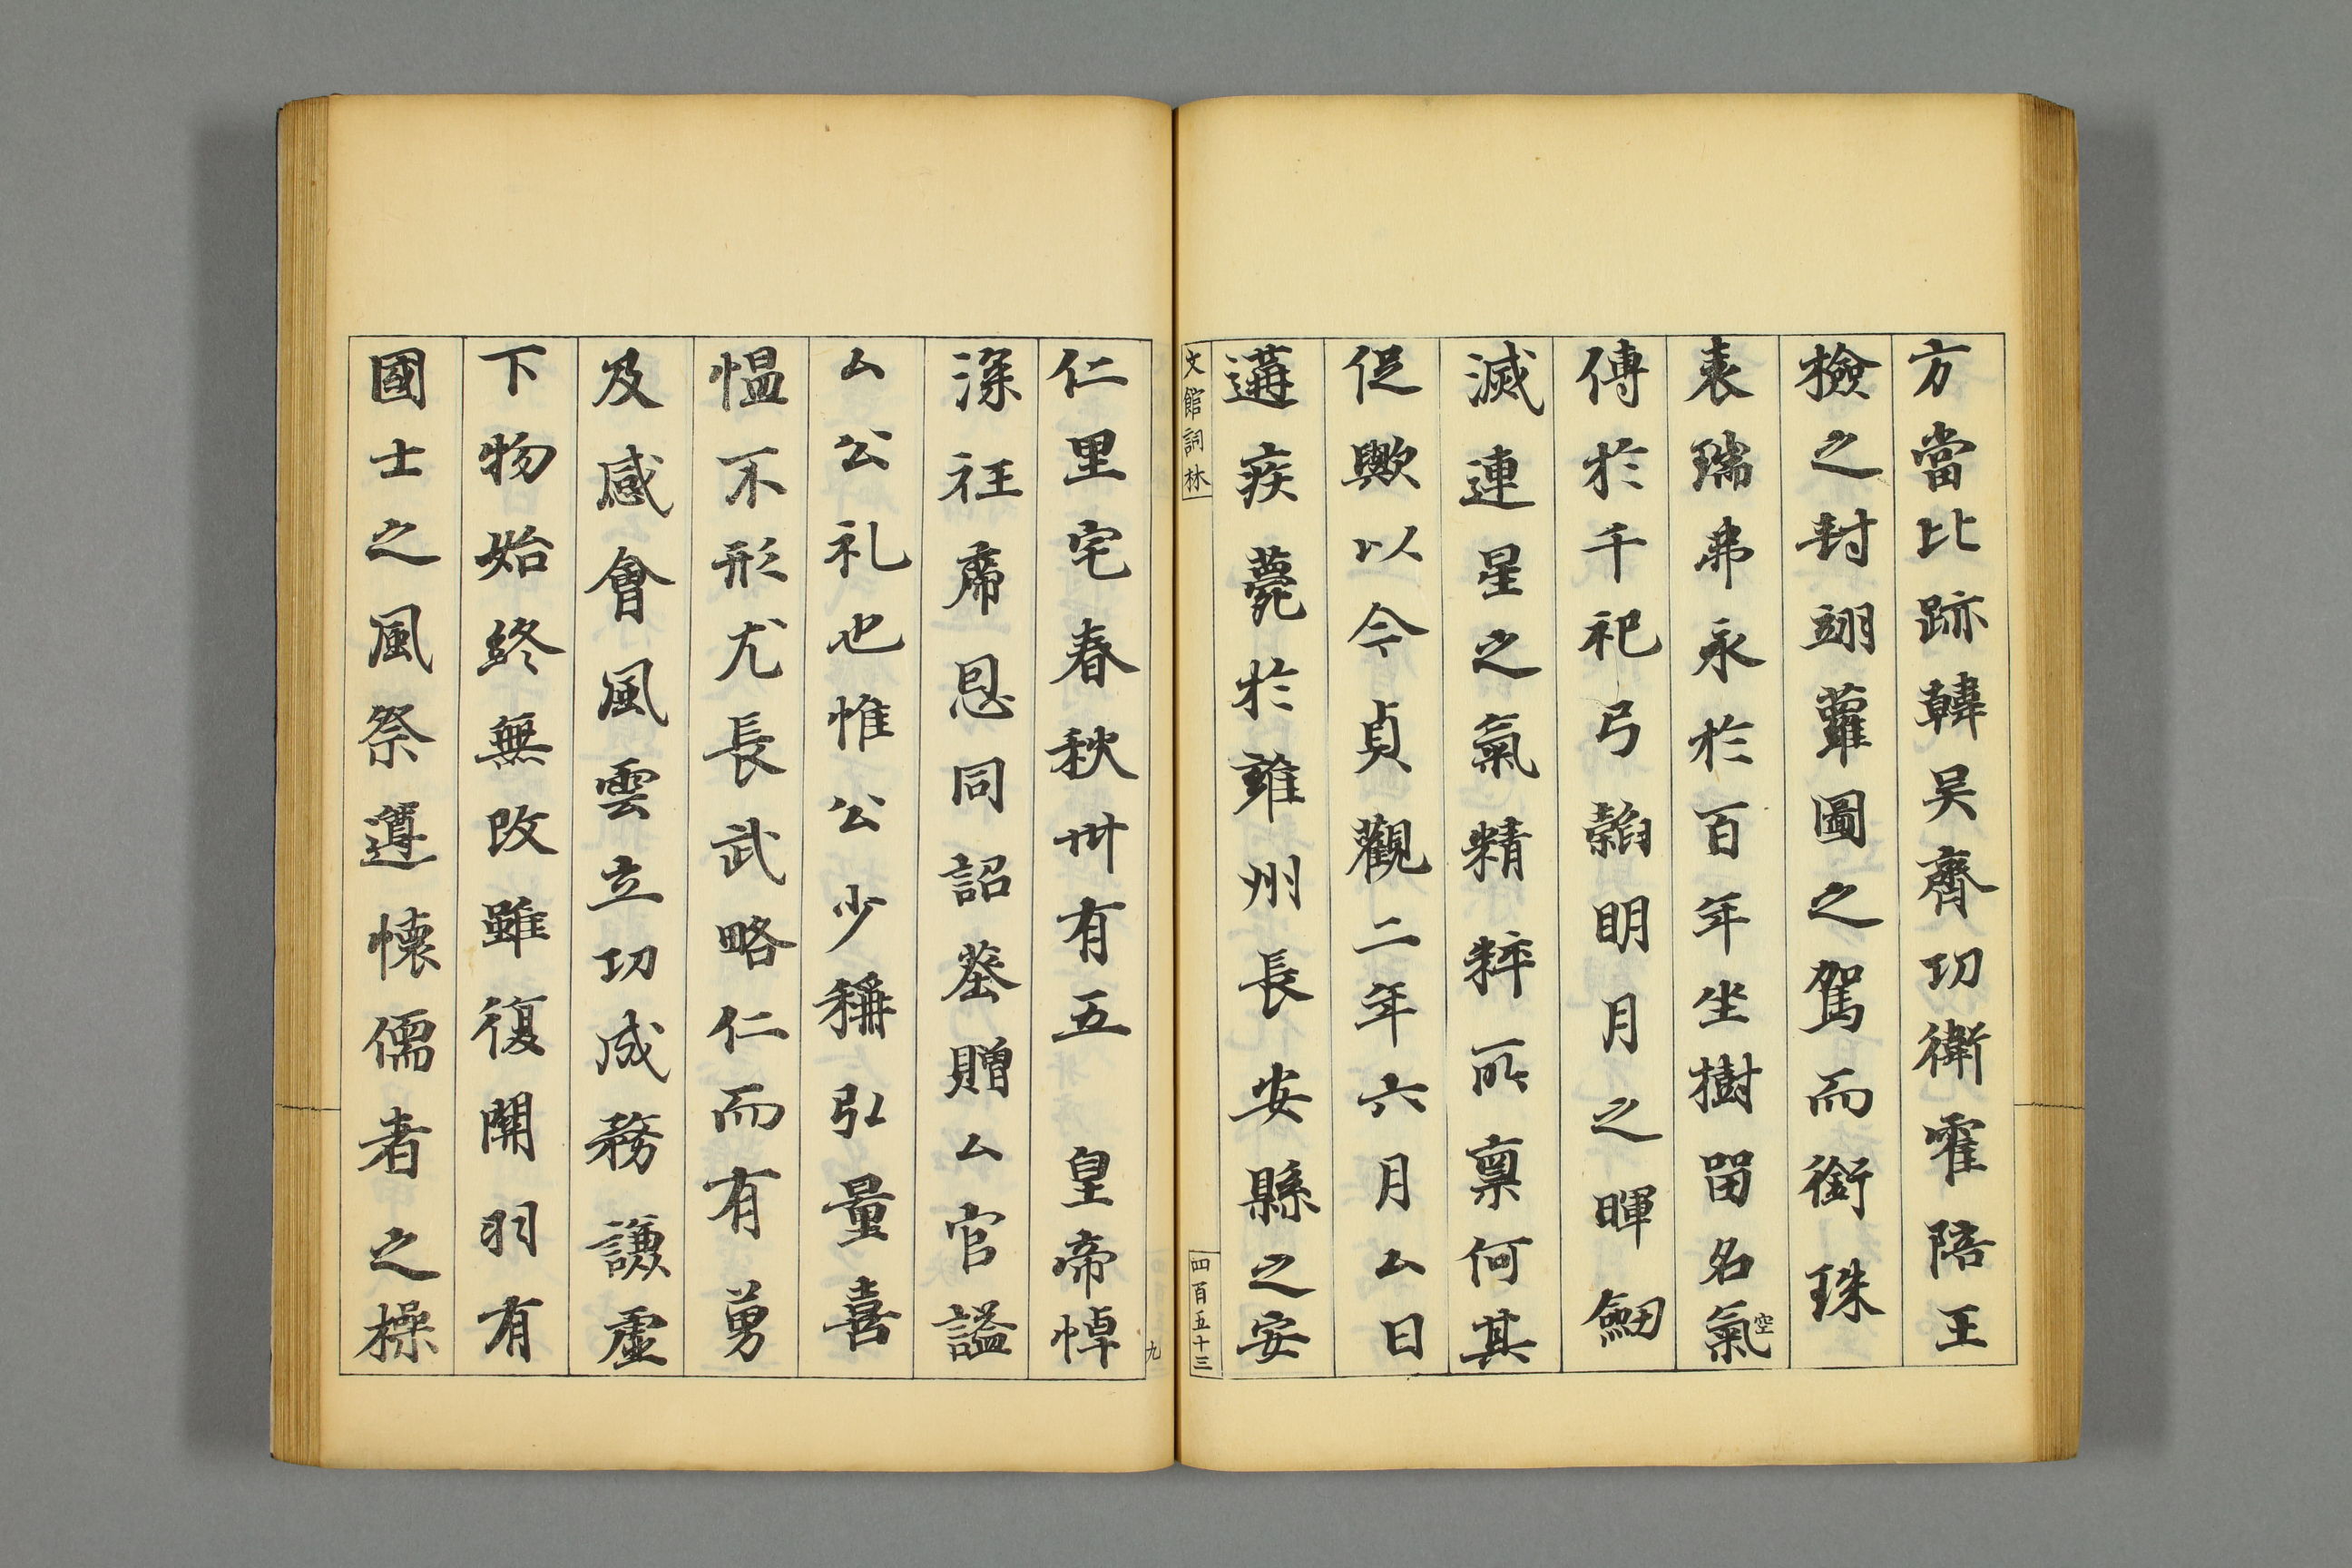 方當比跡韓吴齊功衛霍陪王
檢之封翊蘿圖之駕而銜珠
表瑞弗永於百年坐樹留名氣
空
傳於千祀弓韜明月之暉劒
滅連星之氣精粹所稟何其
促歟以今貞觀二年六月厶日
遘疾薨於雍州長安縣之安
文館詞林
四百五十三
九
仁里宅春秋卅有五 皇帝悼
深衽席恩同詔葬贈厶官謚
厶公礼也惟公少稱弘量喜
愠不形尤長武略仁而有勇
及感會風雲立功成務謙虛
下物始終無改雖復關羽有
國士之風祭遵懷儒者之操